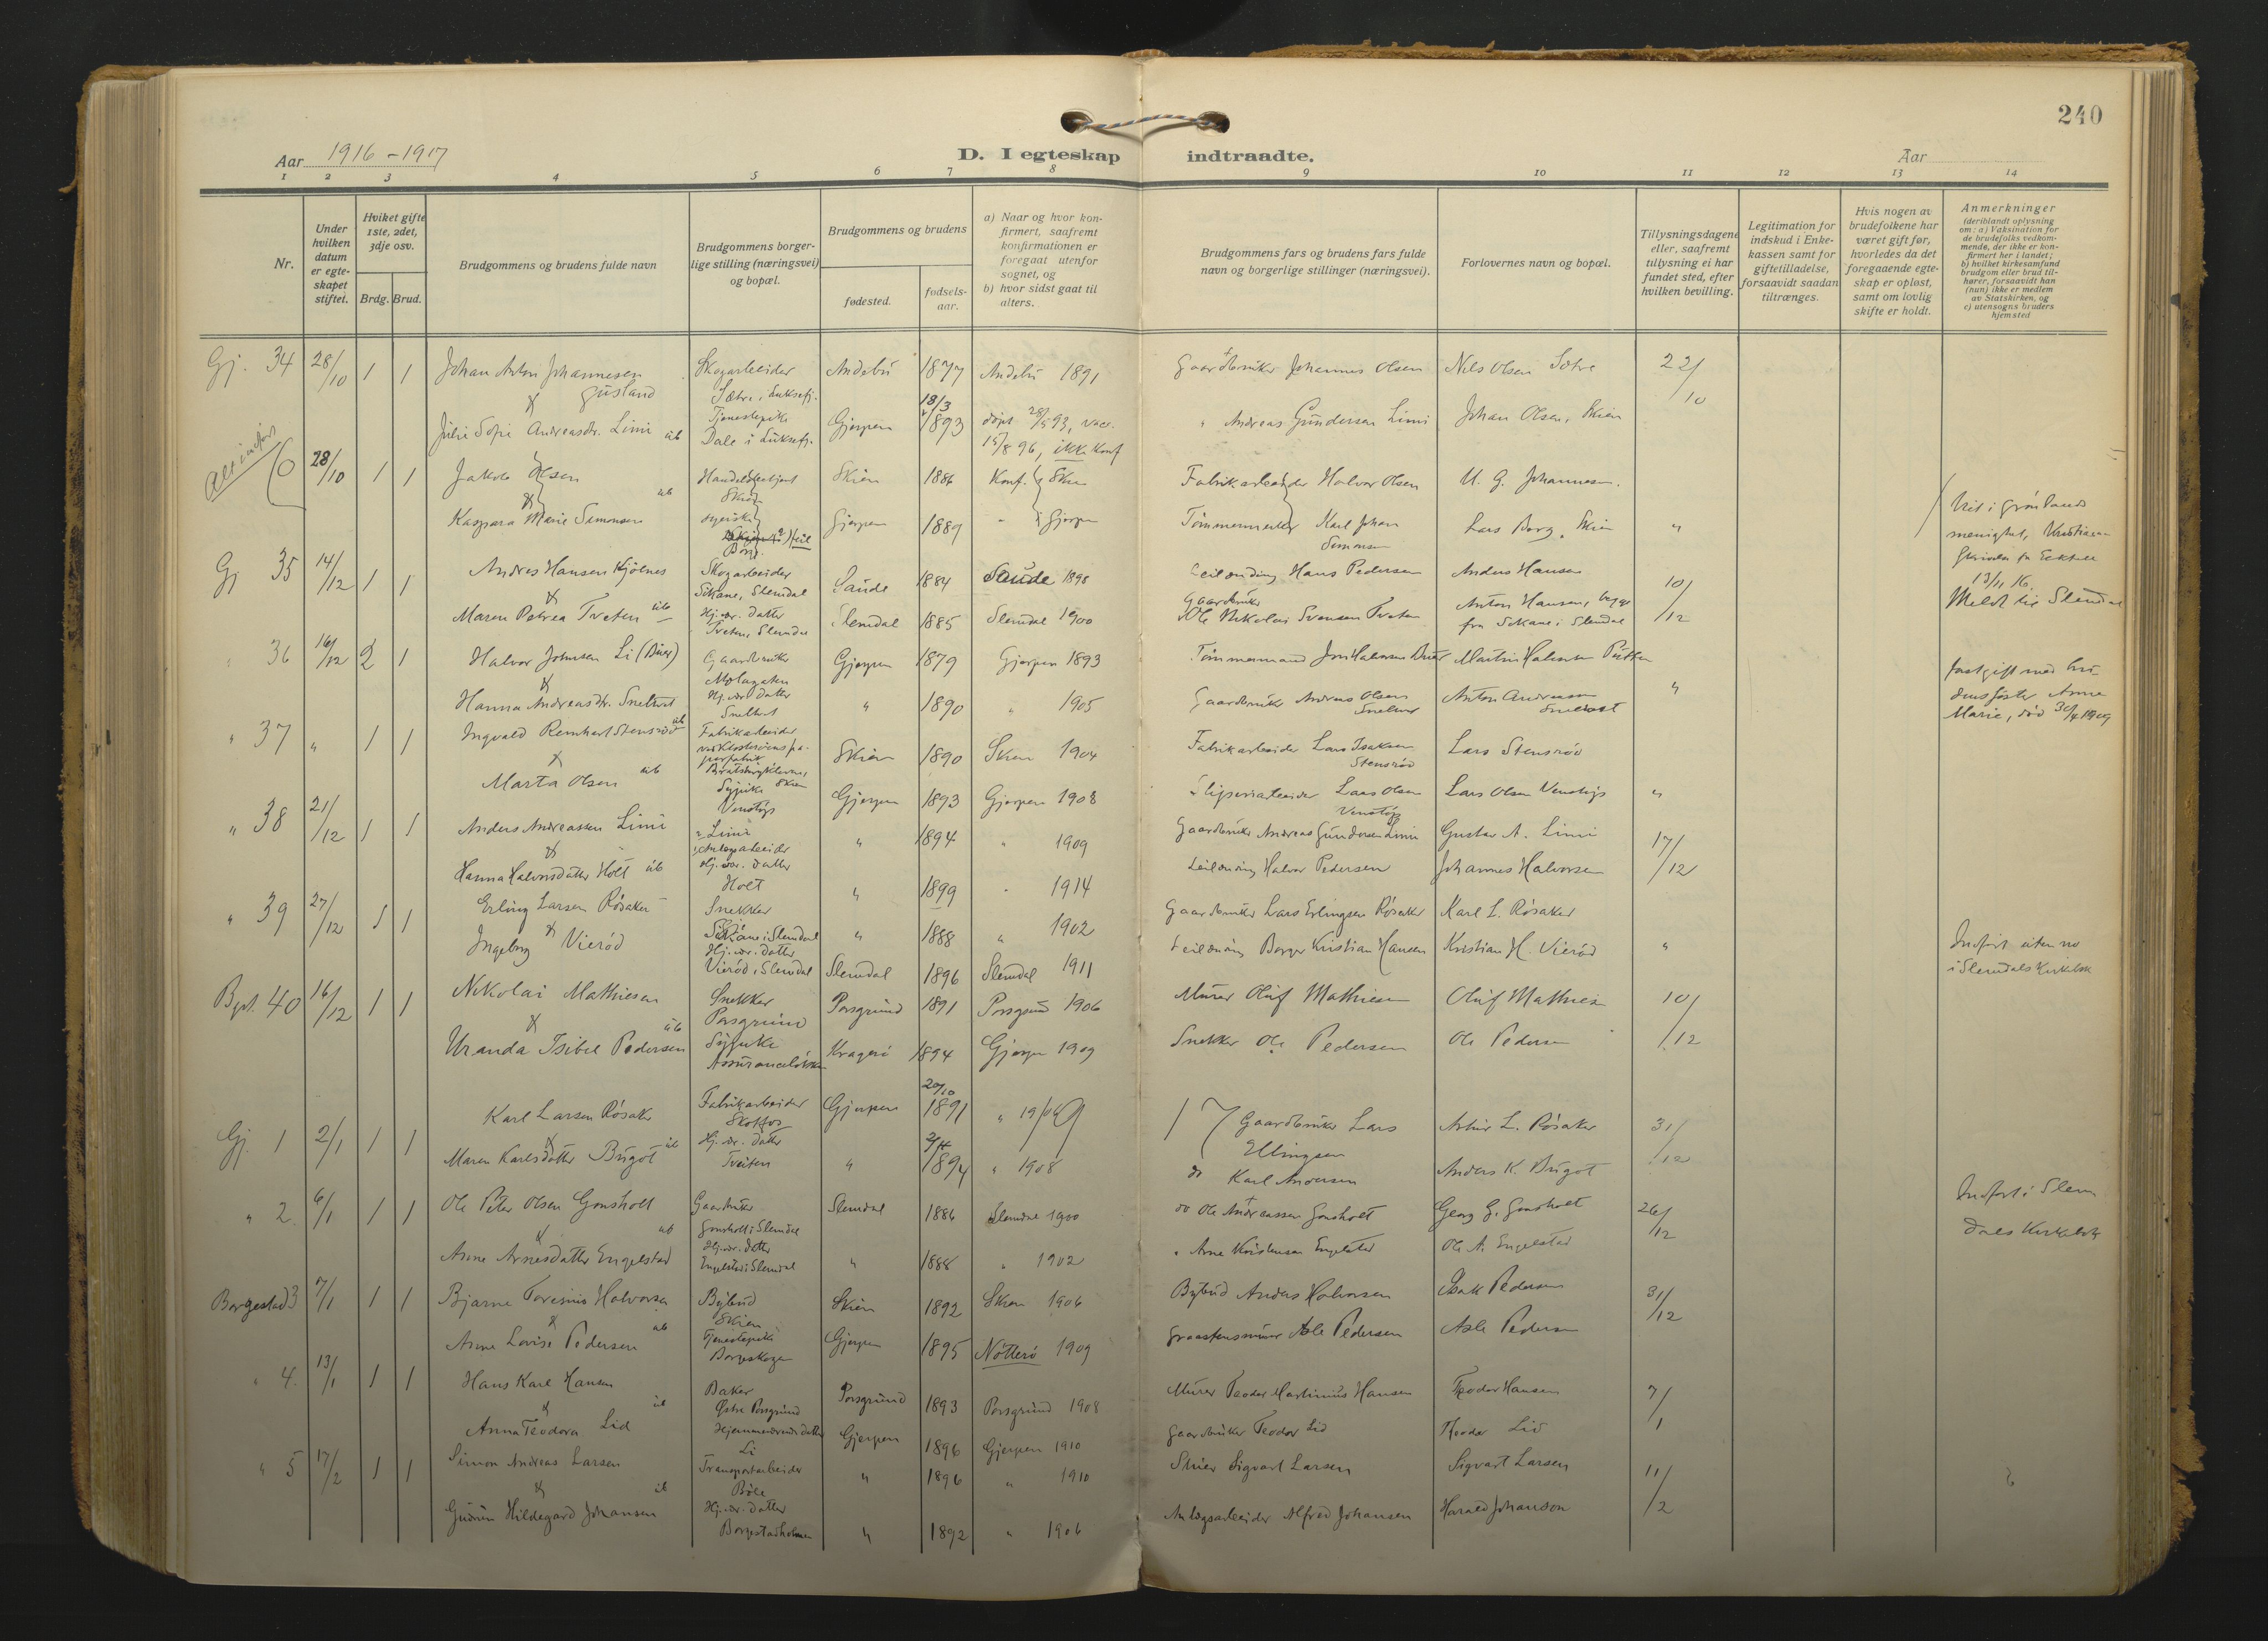 240
Aar 1916-1917
D. I egteskap indtraadte.
Aar
1 2 3 4 5 6 7 8 9 10 11 12 13 14
Nr.
Under hvilken datum er egteskapet stiftet.
Hviket gifte 1ste, 2det, 3dje osv.
Brdg. Brud.
Brudgommens og brudens fulde navn
Brudgommens borgerlige stilling (næringsvei) og bopæl.
Brudgommens og brudens
fødested.
fødselsaar.
a) Naar og hvor konfirmert, saafremt konfirmationen er foregaat utenfor sognet, og
b) hvor sidst gaat til alters.
Brudgommens fars og brudens fars fulde navn og borgerlige stillinger (næringsvei).
Forlovernes navn og bopæl.
Tillysningsdagene eller, saafremt tillysning ei har fundet sted, efter hvilken bevilling.
Legitimation for indskud i Enkekassen samt for giftetilladelse, forsaavidt saadan tiltrænges.
Hvis nogen av brudefolkene har været gift før, hvorledes da det foregaaende egteskap er opløst, samt om lovlig skifte er holdt.
Anmerkninger
(deriblandt oplysning om: a) Vaksination for de brudefolks vedkommende, der ikke er konfirmert her i landet;
b) hvilket kirkesamfund brudgom eller brud tilhører, forsaavidt han (hun) ikke er medlem av Statskirken, og
c) utensogns bruders hjemsted
Gj. 34 28/10 1 1 Johan Anton Johannesen Gusland Skogarbeider Sætre, Luksefj. Andebu 1877 Andebu 1891 Gaardbruker Johannes Olsen Nils Olsen Sætre 22/10
Julie Sofie Andreasdr. Limi ub Tjenestepike Dale i Luksefj. Gjerpen 18/3 1893 døpt 28/5 93, vacc. 15/8 96, ikke Konf " Andreas Gundersen Limi Johan Olsen, Skien
0 28/10 1 1 Jakob Olsen Skien 1886 Konf. Skien Fabrikarbeider Halvor Olsen U. G. Johannesen.
Kaspara Marie Simonsen ub Syerske Gjerpen 1889 " Gjerpen Tømmermerker Karl Johan Simonsen Lars Borg, Skien "
Gj 35 14/12 1 1 Andres Hansen Kjølnes Skogarbeider Sikane, Slemdal Saude 1884 Saude 1898 Leilænding Hans Pedersen Anders Hansen 10/12
Maren Petrea Tveten ub Hj.vr. datter Tveten, Slemdal Slemdal 1885 Slemdal 1900 Gaardbruker Ole Nikolai Svensen Tveten Anton Hansen, begge fra Sikane i Slemdal
" 36 16/12 2 1 Halvor Johnsen Li (Buer) Gaardbruker Gjerpen 1879 Gjerpen 1893 Tømmermand Jon Halvorsen Buer
Hanna Andreasdr. Sneltvet Hj.vr. datter Sneltvet " 1890 " 1905 Gaardbruker Andreas Olsen Sneltvet Anton Andreassen Sneltvet " Marie, død 30/4 1909
" 37 " 1 1 Ingvald Reinhart Stensrød ub Fabrikarbeider Skien 1890 Skien 1904 Fabrikarbeider Lars Isaksen Stensrød Lars Stensrød
Marta Olsen ub Sypike Venstøp Gjerpen 1893 Gjerpen 1908 Sliperiarbeider Lars Olsen Venstøp Lars Olsen Venstøp "
" 38 21/12 1 1 Anders Andreassen Limi Limi Anlegsarbeider " 1894 " 1909 Gaardbruker Andreas Gundersen Limi Gustav A. Limi 17/12
Hanna Halvorsdatter Holt ub Hj.vr. datter Holt " 1899 " 1914 Leilænding Halvor Pedersen Johannes Halvorsen
" 39 27/12 1 1 Erling Larsen Røsaker Snekker Sikane i Slemdal " 1888 " 1902 Gaardbruker Lars Erlingsen Røsaker Karl L. Røsaker
Ingeborg Vierød Hj.vr. datter Vierød, Slemdal Slemdal 1896 Slemdal 1911 Leilænding Borger Kristian Hansen Kristian H. Vierød " Indført uten no i Slemdals Kirkebok
40 16/12 1 1 Nikolai Mathiesen Snekker Porsgrund Porsgrund 1891 Porsgrund 1906 Murer Oluf Mathiesen Oluf Mathiesen 10/12
Uranda Isibel Pedersen ub Sypike Kragerø 1894 Gjerpen 1909 Snekker Ole Pedersen Ole Pedersen
17
Gj. 1 2/1 1 1 Karl Larsen Røsaker Fabrikarbeider Skotfos Gjerpen 20/10 1891 " 1906 Gaardbruker Lars Ellingsen Artur L. Røsaker 31/12
Maren Karlsdatter Bugot ub Hj.vr. datter Tveiten " 2/4 1894 " 1908 do Karl Andersen Anders K. Bugot
" 2. 6/1 1 1 Ole Peter Olsen Gonsholt Gaardbruker Gonsholt i Slemdal Slemdal 1886 Slemdal 1900 do Ole Andreassen Gonsholt Georg G. Gonsholt 26/12 Indført i Slemdals Kirkebok
Anne Arnesdatter Engelstad ub Hj.vr. datter Engelstad i Slemdal " 1888 " 1902 " Arne Kristensen Engelstad Ole A. Engelstad
Borgestad 3 7/1 1 1 Bjarne Toresius Halvorsen Bybud Skien Skien 1892 Skien 1906 Bybud Anders Halvorsen Isak Pedersen 31/12
Anne Lovise Pedersen ub Tjenestepike Borgeskogen Gjerpen 1895 Nøtterø 1909 Graastensmurer Asle Pedersen Asle Pedersen
" 4. 13/1 1 1 Hans Karl Hansen Baker Østre Porsgrund Porsgrund 1893 Porsgrund 1908 Murer Teodor Martinius Hansen Teodor Hansen 7/1
Anna Teodora Lid ub Hjemmeværende datter Li Gjerpen 1896 Gjerpen 1910 Gaardbruker Teodor Lid Theodor Lid
" 5 17/2 1 1 Simon Andreas Larsen Transportarbeider Bøle " 1896 " 1910 Sigvart Larsen Sigvart Larsen 11/2
Gudrun Hildegard Johansen ub Hj.vr. datter Borgestadholmen " 1892 " 1906 Anlegsarbeider Alfred Johansen Harald Johanson